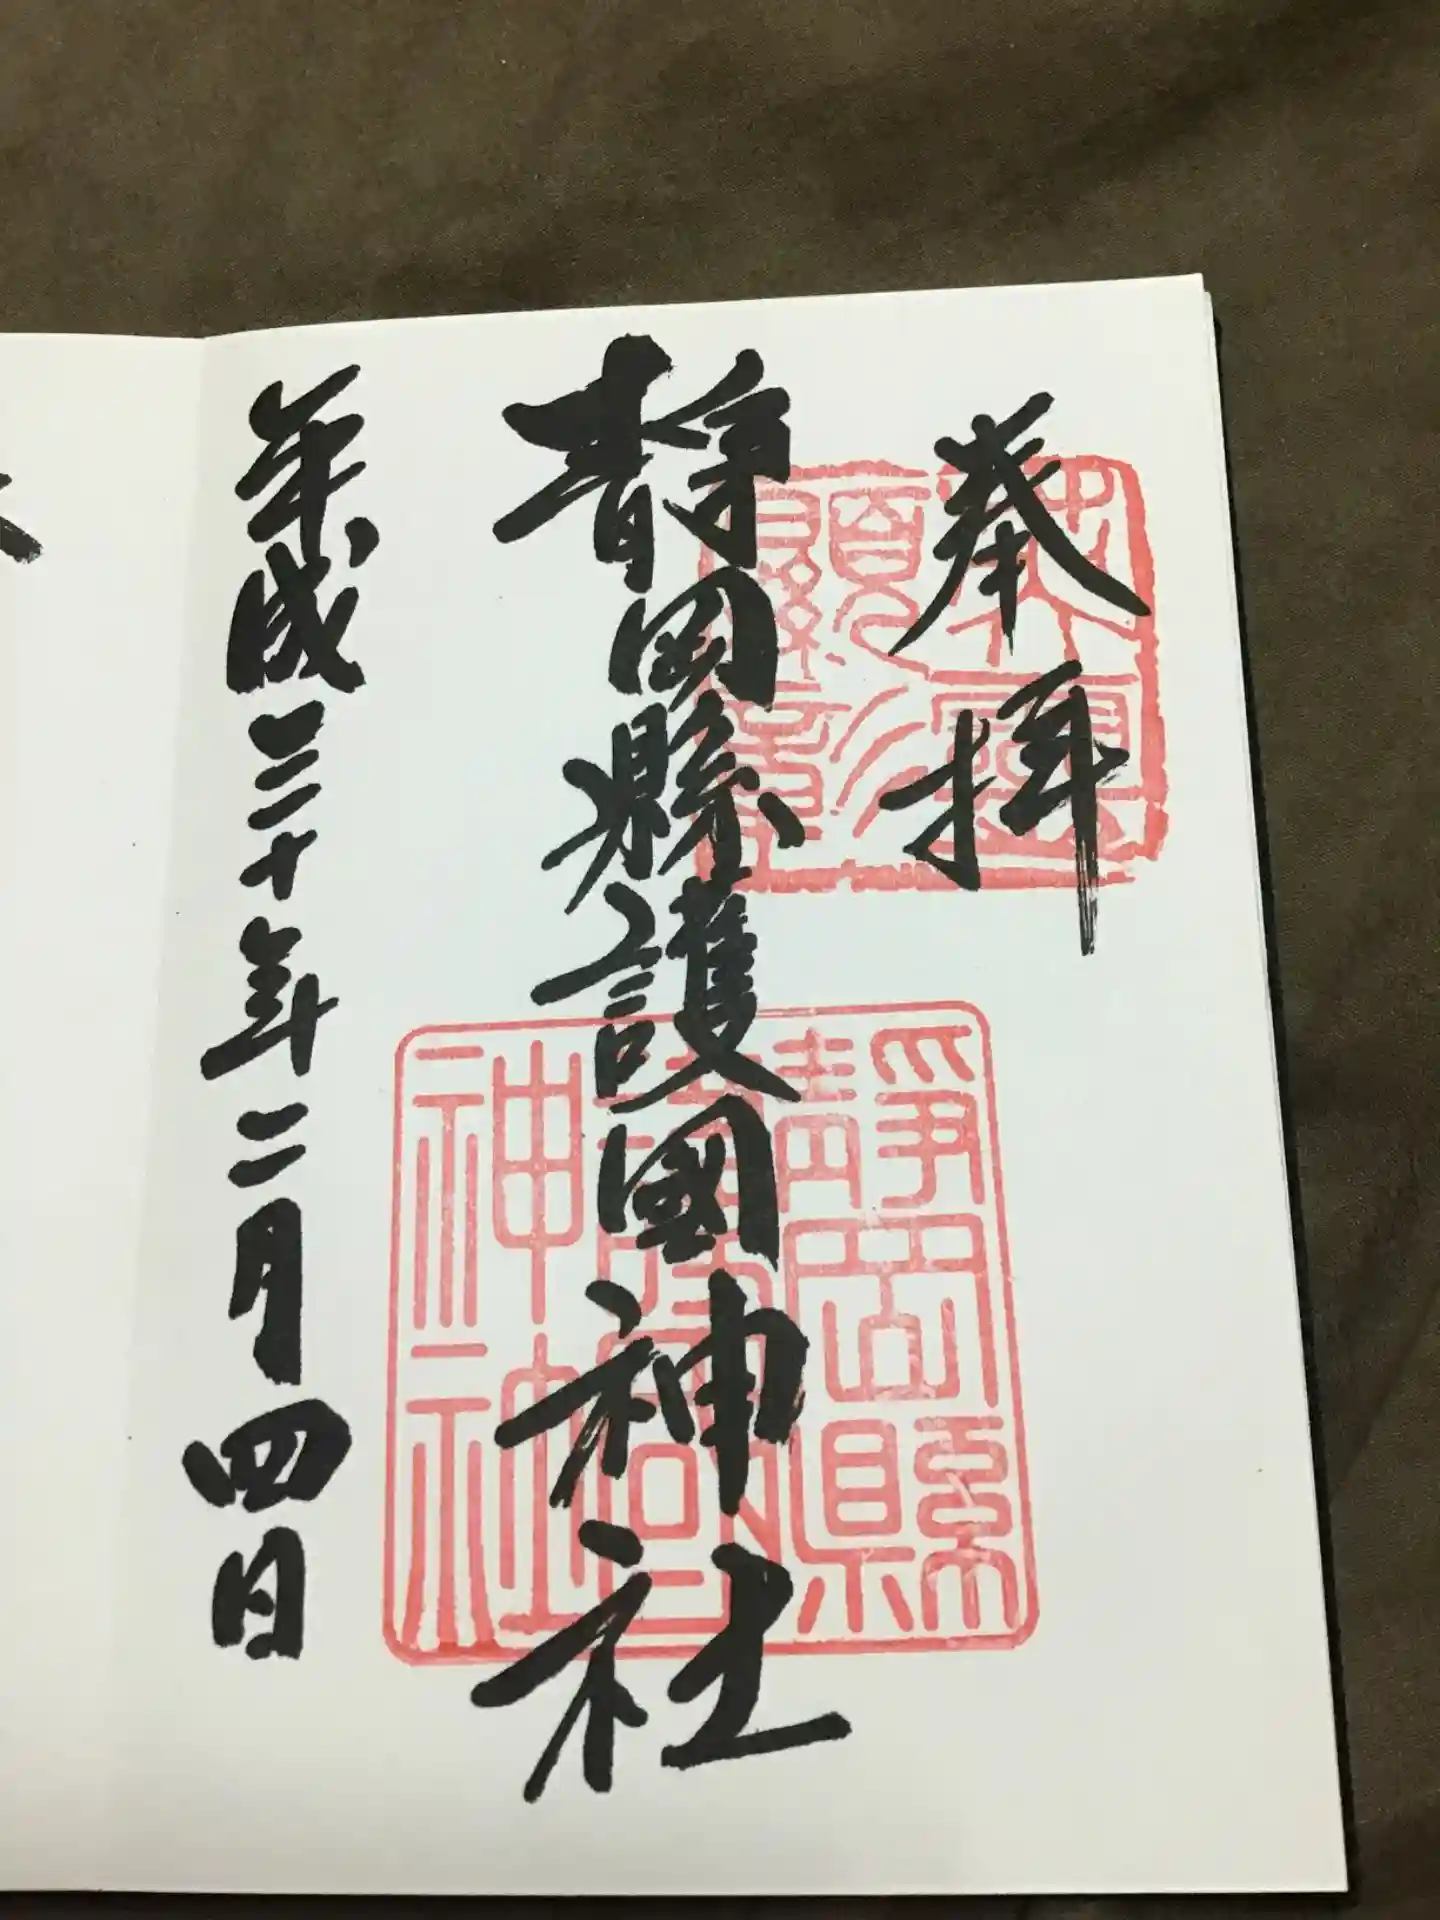 奉拝
静岡縣護國神社
平成三十年二月四日
靜岡縣
護國
神社